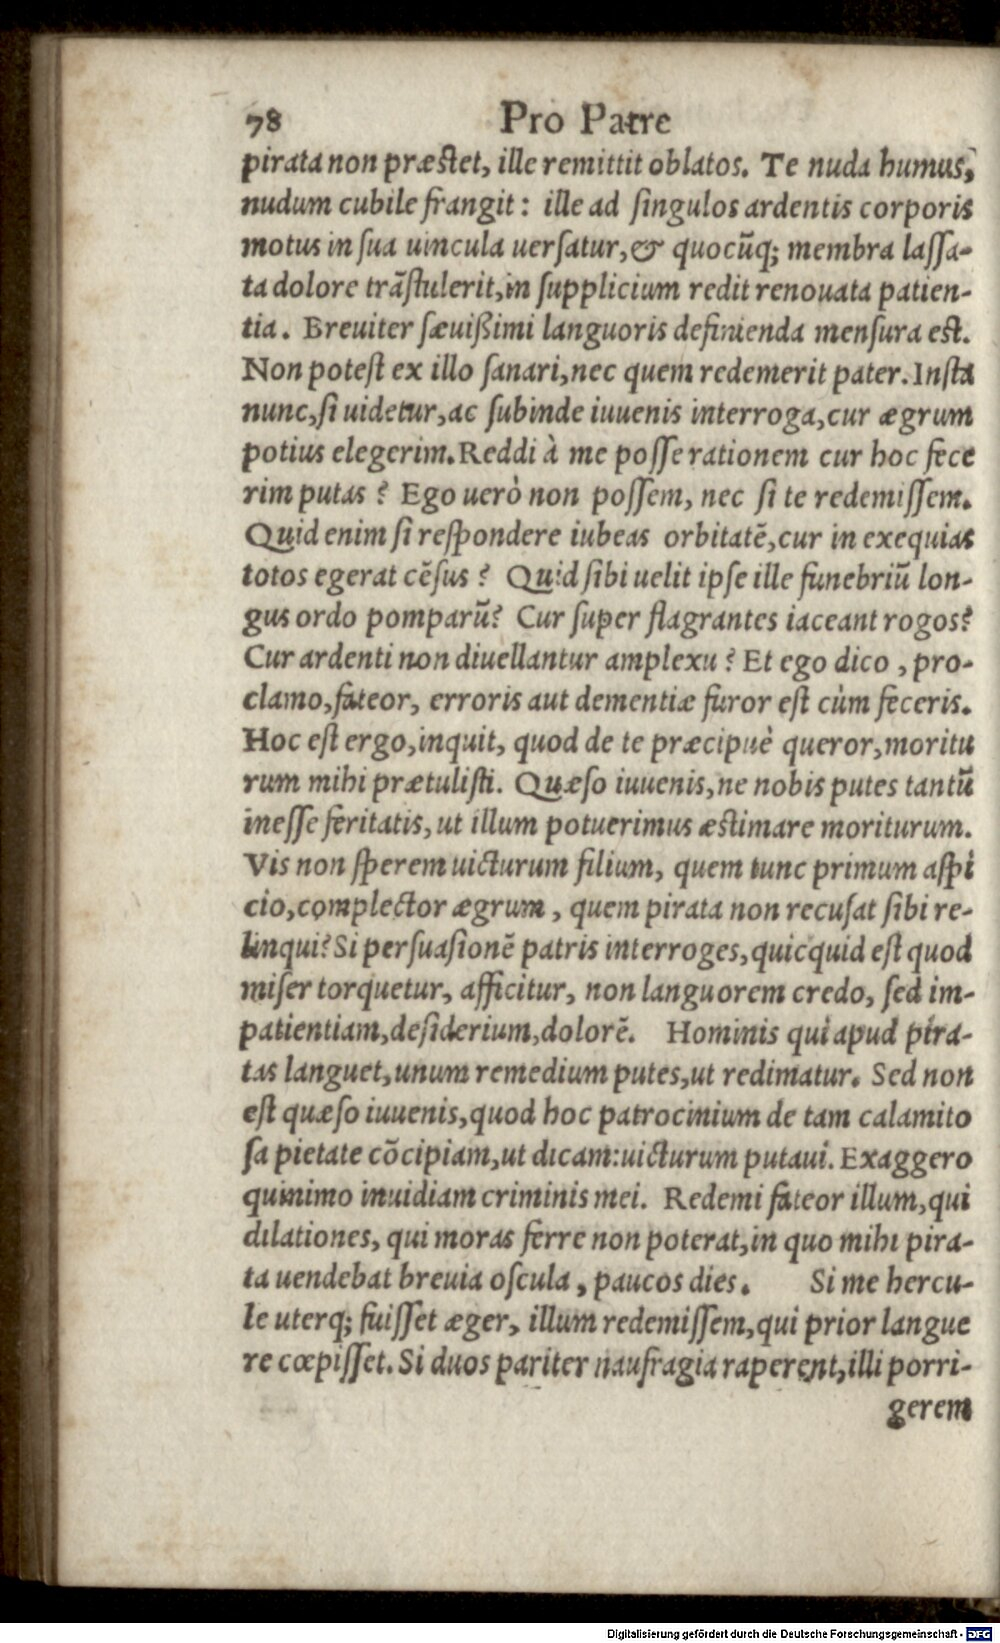 78 Pro Patre
pirata non præstet, ille remittit oblatos. Te nuda humus,
nudum cubile frangit: ille ad ſingulos ardentis corporis
motus in ſua uincula uerſatur, & quocūq; membra laſſa-
ta dolore trāſtulerit, in ſupplicium redit renouata patien-
tia. Breuiter ſæuißimi languoris definienda menſura est.
Non poteſt ex illo ſanari, nec quem redemerit pater. Inſta
nunc, ſi uidetur, ac ſubinde iuuenis interroga, cur ægrum
potius elegerim. Reddi à me poſſe rationem cur hoc fece
rim putas? Ego uerò non poſſem, nec ſi te redemiſſem.
Quid enim ſi reſpondere iubeas orbitatē, cur in exequias
totos egerat cēſus? Quid ſibi uelit ipſe ille funebriū lon-
gus ordo pomparū? Cur ſuper flagrantes iaceant rogos?
Cur ardenti non diuellantur amplexu? Et ego dico, pro-
clamo, fateor, erroris aut dementiæ furor eſt cùm feceris.
Hoc eſt ergo, inquit, quod de te præcipuè queror, moritu
rum mihi prætuliſti. Quæſo iuuenis, ne nobis putes tantū
ineſſe feritatis, ut illum potuerimus æstimare moriturum.
Vis non ſperem uicturum filium, quem tunc primum aſpi
cio, complector ægrum, quem pirata non recuſat ſibi re-
linqui? Si perſuaſionē patris interroges, quicquid eſt quod
miſer torquetur, afficitur, non languorem credo, ſed im-
patientiam, deſiderium, dolorē. Hominis qui apud pira-
tas languet, unum remedium putes, ut redimatur. Sed non
eſt quæſo iuuenis, quod hoc patrocinium de tam calamito
ſa pietate cōcipiam, ut dicam: uicturum putaui. Exaggero
quinimo inuidiam criminis mei. Redemi fateor illum, qui
dilationes, qui moras ferre non poterat, in quo mihi pira-
ta uendebat breuia oſcula, paucos dies. Si me hercu-
le uterq; fuiſſet æger, illum redemiſſem, qui prior langue
re cœpiſſet. Si duos pariter naufragia raperent, illi porri-
gerem
Digitalisierung gefördert durch die Deutsche Forschungsgemeinschaft - DFG